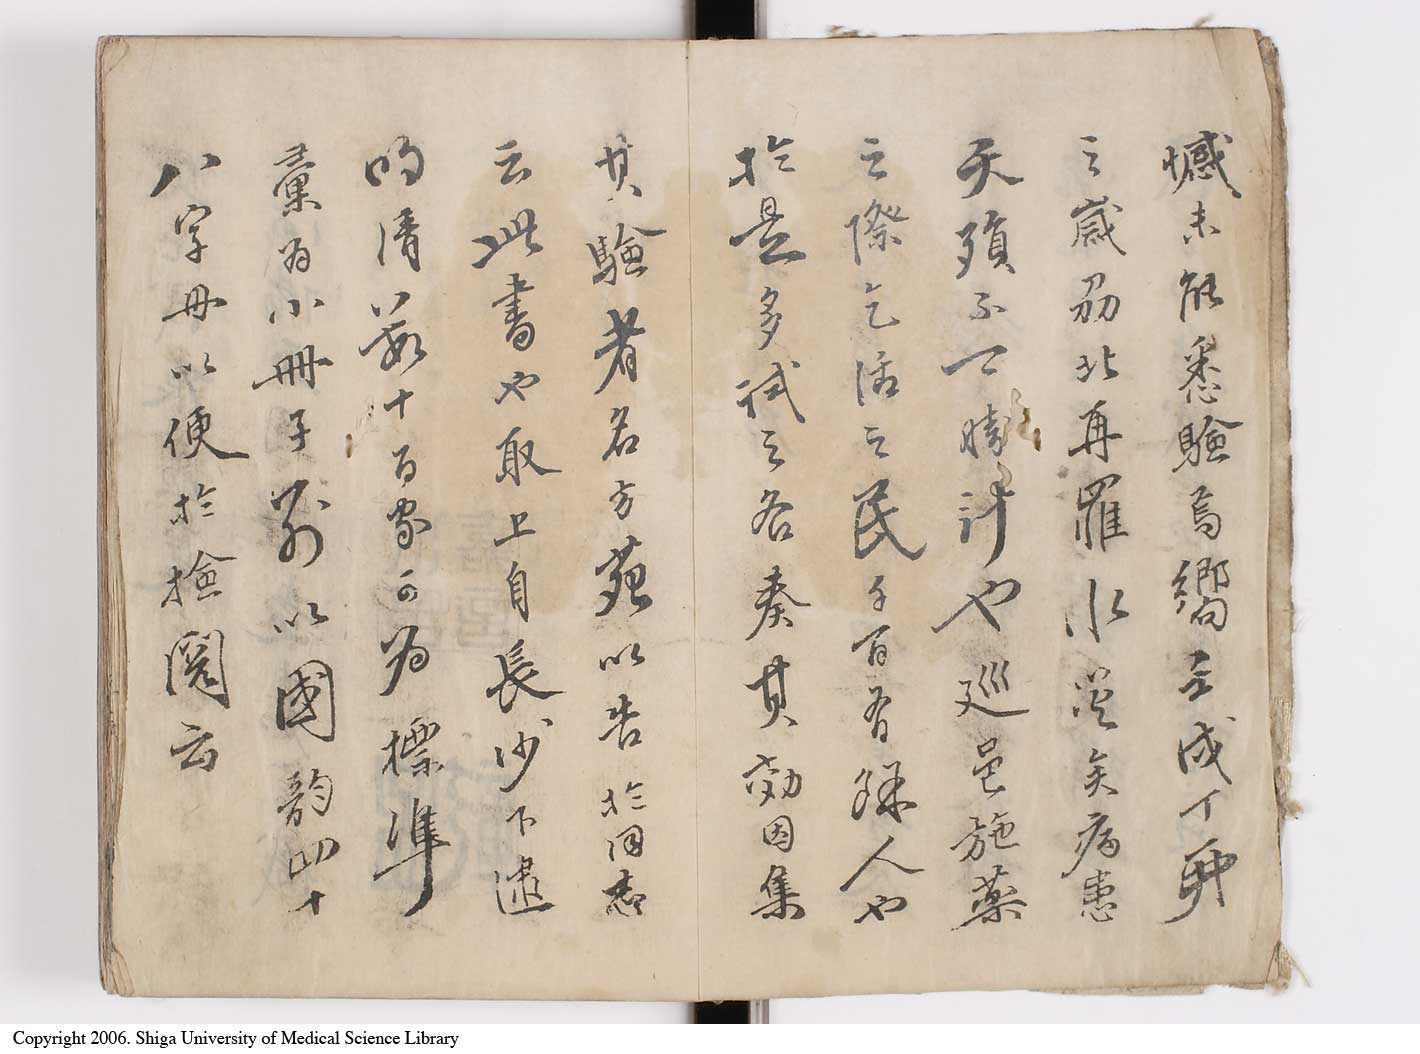 憾未能悉驗焉嚮至戊丁卯
之歳羽北再罹水災矣病患
夭殞不可勝計也巡邑施薬
之際乞活之民千百有餘人也
於是多試之各奏其効因集
其驗者名方苑以告於同志
云此書也取上自長沙下逮
明清数十百家可为標準
彙为小冊子別以國韵四十
八字毋以便於撿閲云
Copyright 2006. Shiga University of Medical Science Library